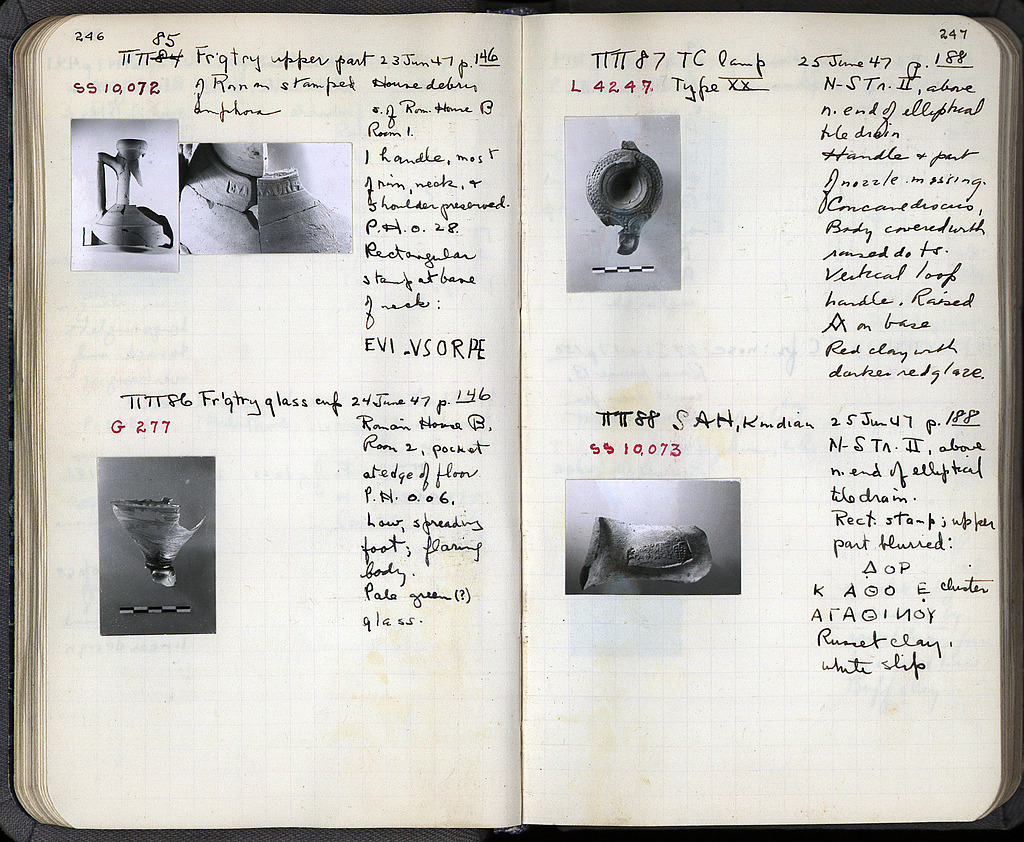 246
85
ΠΠ84 Fr'gt'ry upper part 23 Jun 47 p. 146
SS 10,072 of Roman stamped House debris
amphora s. of Rom. House B
Room 1.
1 handle, most
of rim, neck, &
shoulder preserved.
P.H. 0.28.
Rectangular
stamp at base
of neck:
EVI.VSORPE
ΠΠ86 Fr'gt'ry glass cup 24 June 47 p. 146
G 277 Roman House B,
Room 2, pocket
at edge of floor
P.H. 0.06.
Low, spreading
foot; flaring
body.
Pale green(?)
glass.
247
ΠΠ87 TC lamp 25 June 47 p. 188
L 4247. Type XX N-S Tr. II, above
n. end of elliptical
tile drain
Handle & part
of nozzle missing.
Concave discus,
Body covered with
raised dots.
Vertical loop
handle. Raised
A on base
Red clay with
darker red glaze.
ΠΠ88 SAH, Knidian 25 Jun 47 p. 188
SS 10,073 N-S Tr. II, above
n. end of elliptical
tile drain.
Rect. stamp; upper
part blurred:
Δ̣ΟΡ
Κ Α̣ΘΟ Ε̣ cluster
ΑΓΑΘΙΝΟΥ
Russet clay,
white slip